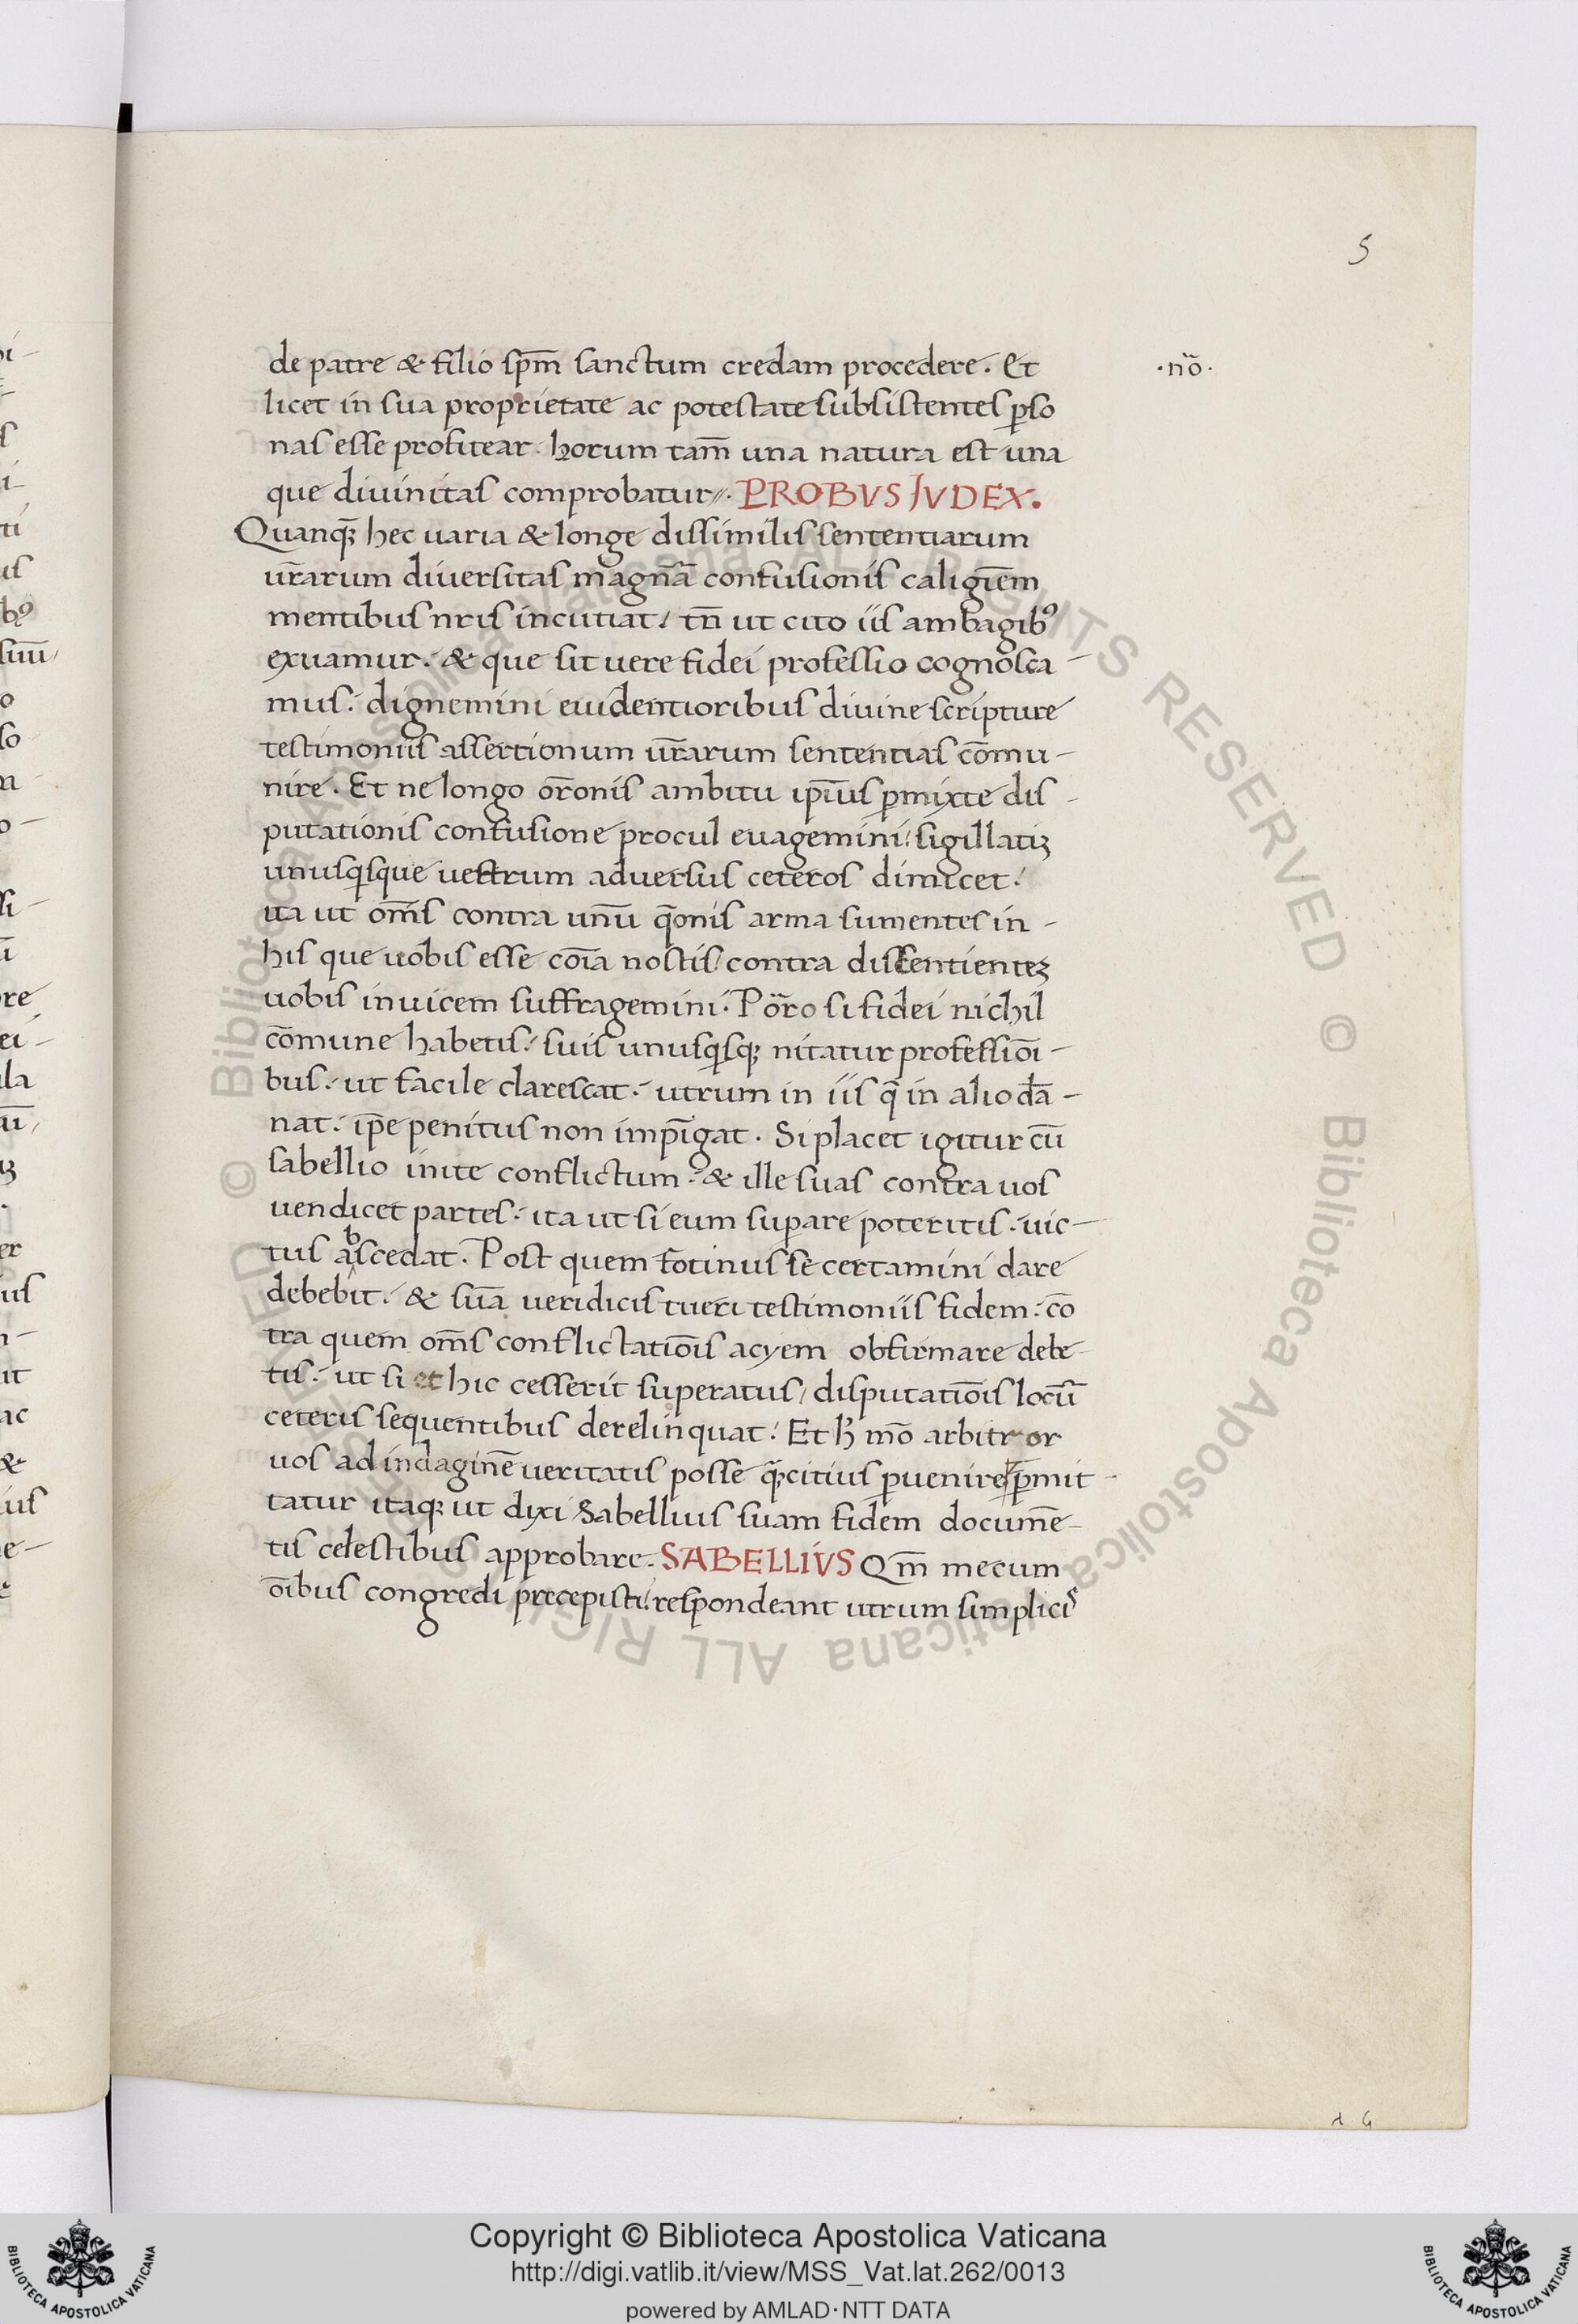 5
de patre & filio sp̄m sanctum credam procedere. Et
·nō·
licet in sua proprietate ac potestate subsistentes ꝑso
nas esse profitear. horum tam̄ una natura est una
que divinitas comprobatur. PROBVS JVDEX.
Quanqꝫ hec uaria & longe dissimilis sententiarum
ur̄arum diversitas magnā confusionis caligiēm
mentibus nris incutiat/ tn̄ ut cito iis ambagibꝯ
exuamur. & que sit uere fidei professio cognosca-
mus: dignemini euidentioribus divine scripture
testimoniis assertionum ur̄arum sententias cōmu-
nire. Et ne longo or̄onis ambitu ip̄ius ꝑmixte dis-
putationis confusione procul euagemini: sigillatiꝫ
unusqisque uestrum adversus ceteros dimicet:
ita ut om̄s contra unū q̄onis arma sumentes in-
his que uobis esse cōia nostis/ contra dissentientes
uobis invicem suffragemini. Pōro si fidei nichil
cōmune habetis: suis unusqisqꝫ nitatur professiōi-
bus: ut facile clarescat: utrum in iis q̄ in alio dā-
nat: ip̄e penitus non impīgat. Si placet igitur cū
sabellio inite conflictum: & ille suas contra uos
uendicet partes: ita ut si eum suꝑare poteritis: uic-
b
tus ascedat. Post quem fotinus se certamini dare
debebit: & suā ueridicis tueri testimoniis fidem: cō
tra quem om̄s conflictatiōis acyem obfirmare debe-
tis: ut si et hic cesserit superatus/ disputatiōis locū
ceteris sequentibus derelinquat: Et h̄ mō arbitror
uos ad indaginē ueritatis posse qꝫcitius ꝑuenire ꝑmit-
tatur itaqꝫ ut dixi Sabellius suam fidem documē-
tis celestibus approbare. SABELLIVS Qm̄ mecum
ōibus congredi precepisti: respondeant utrum simplicis
© Biblioteca Apostolica Vaticana ALL RIGHTS RESERVED © Biblioteca Apostolica Vaticana ALL RIGHTS RESERVED
Copyright © Biblioteca Apostolica Vaticana
http://digi.vatlib.it/view/MSS_Vat.lat.262/0013
powered by AMLAD·NTT DATA
BIBLIOTECA APOSTOLICA VATICANA
BIBLIOTECA APOSTOLICA VATICANA